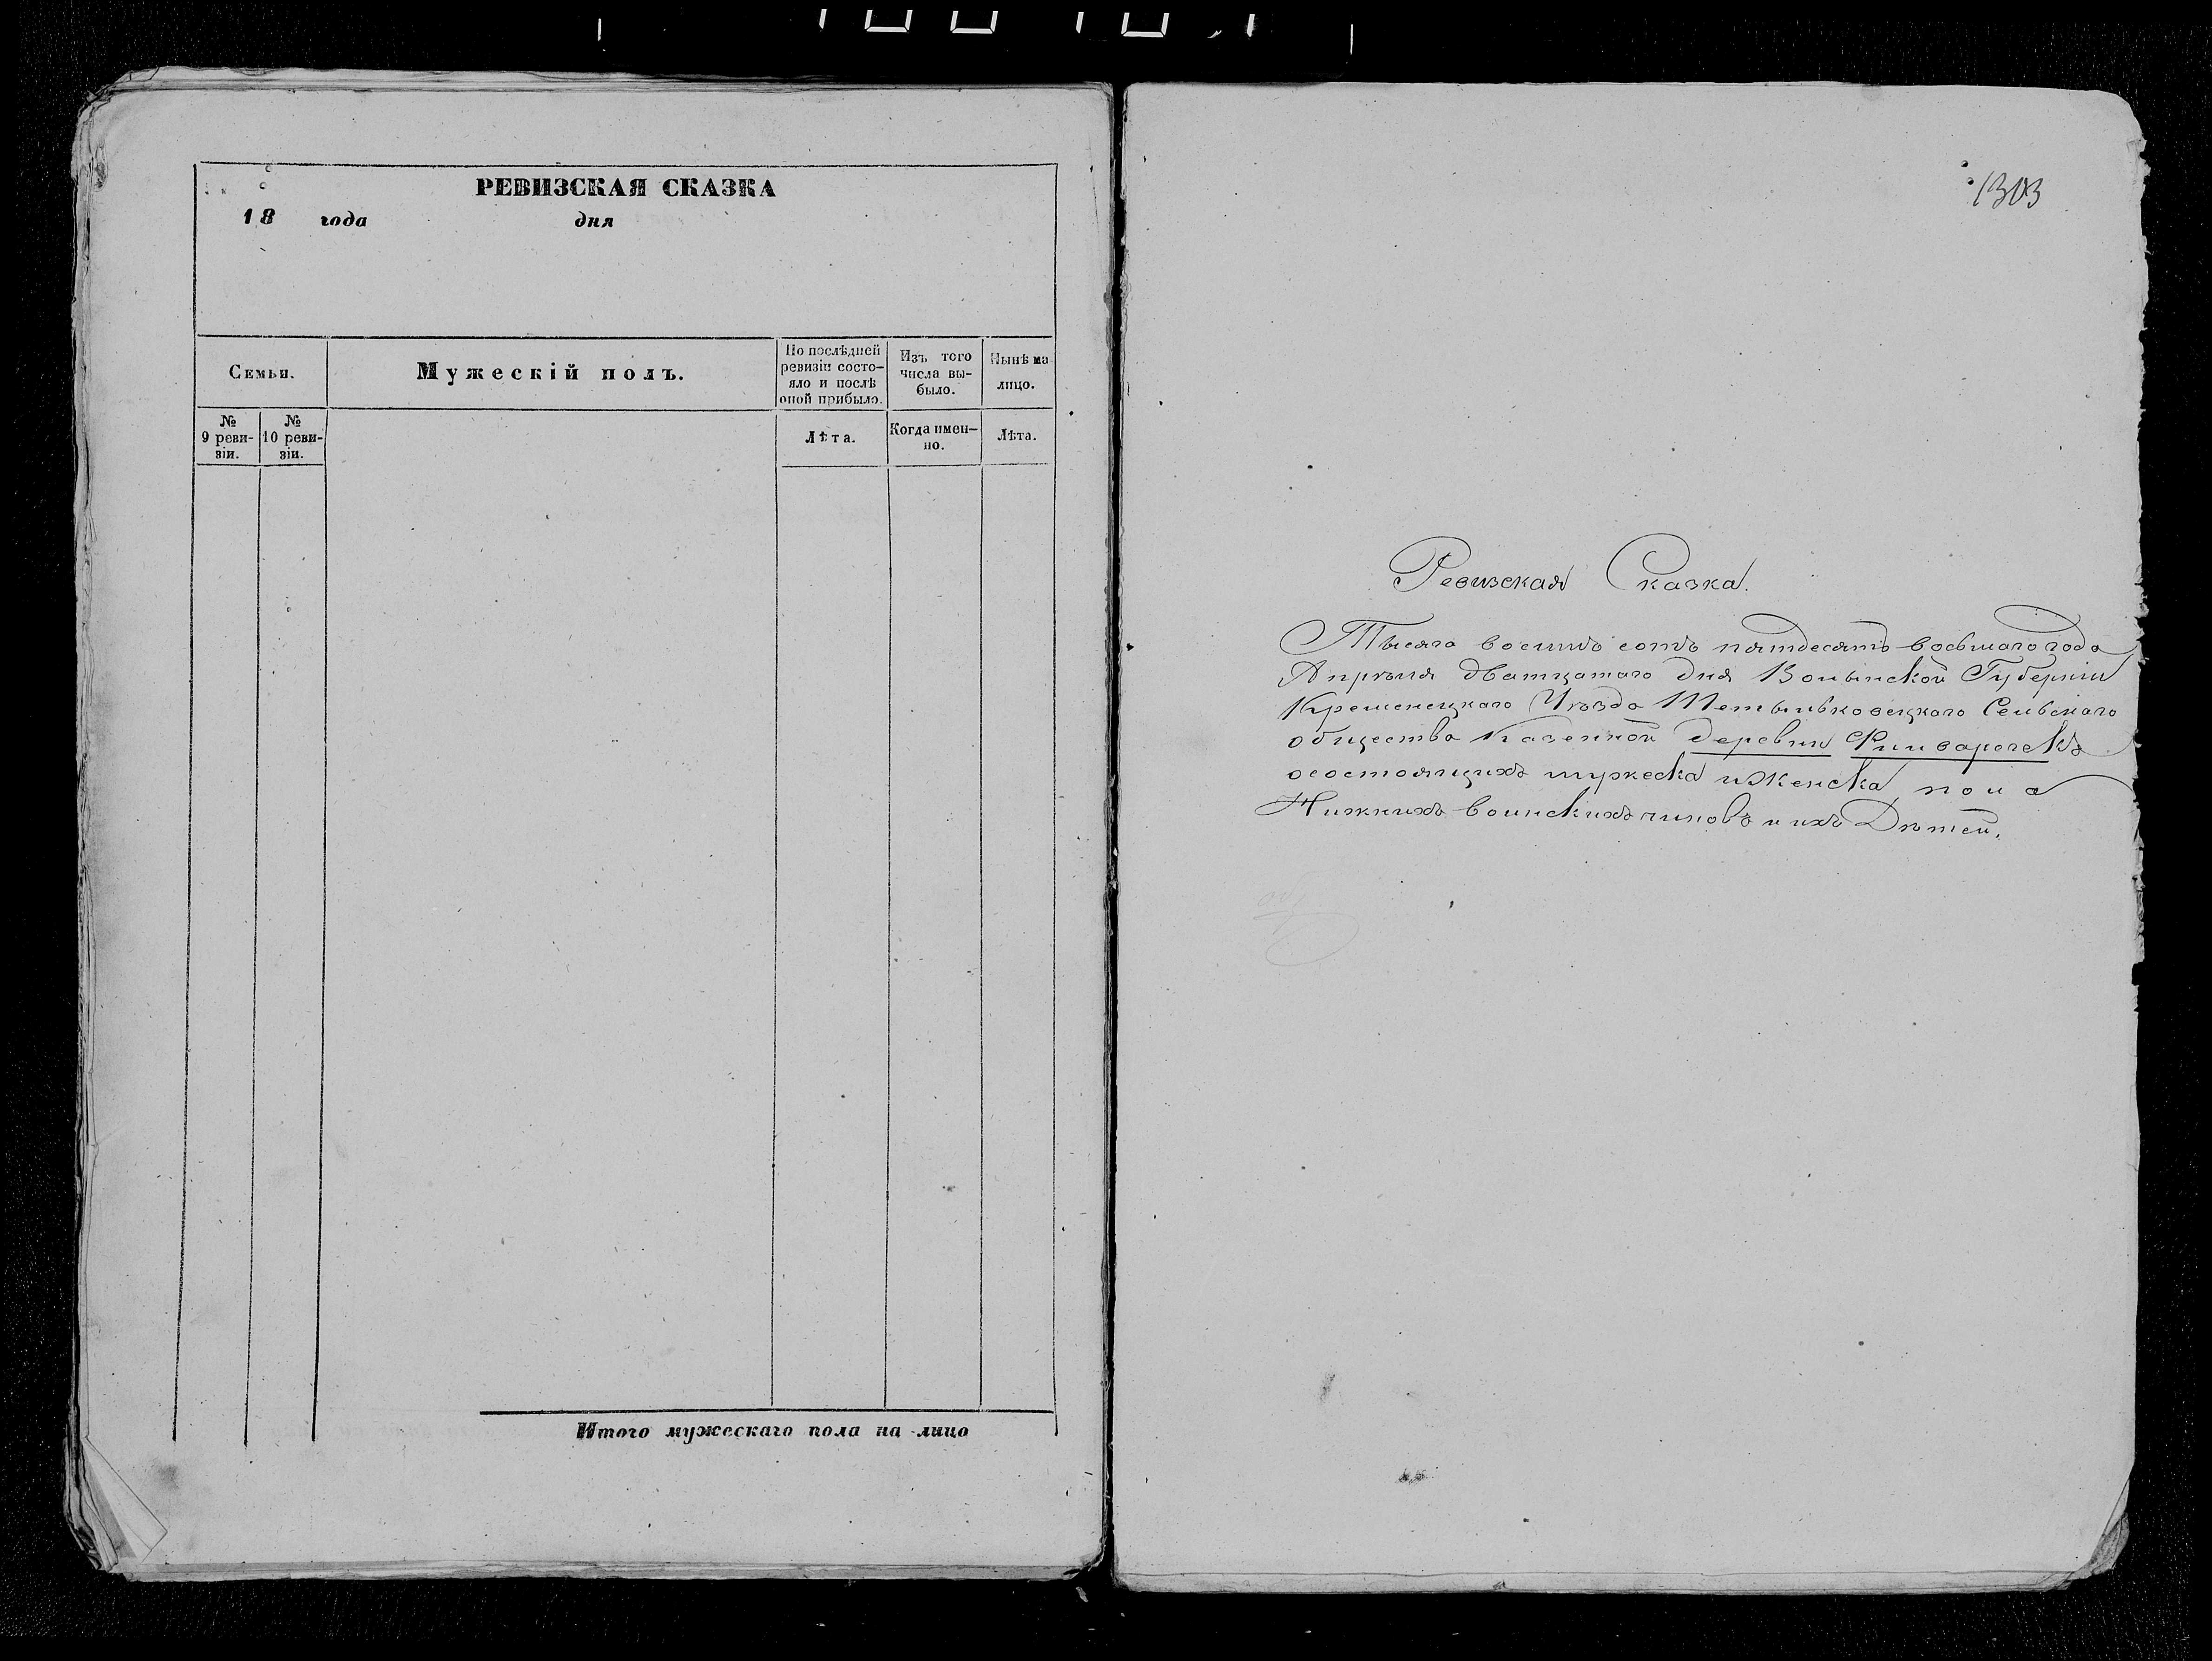 РЕВИЗСКАЯ СКАЗКА
18 года дня
Семьи.
Мужескій полъ.
По послѣдней ревизіи состо-
яло и послѣ оной прибыло.
Изъ того числа вы-
было.
Нынѣ на лицо.
№ 9 реви-
зіи.
№ 10 реви-
зіи.
Лѣта.
Когда имен-
но.
Лѣта.
Итого мужескаго пола на лицо
1303
Ревизская Сказка.
Тысяча восемь сотъ пятдесятъ восьмаго года
Апрѣля дватцатаго дня Волынской Губерніи
Кременецкаго Уѣзда Сельскаго
общества Казенной деревни Фильварочекъ
осостоящихъ мужеска и Женска пола
Нижнихъ воинскихъ чиновъ и ихъ Дѣтей.